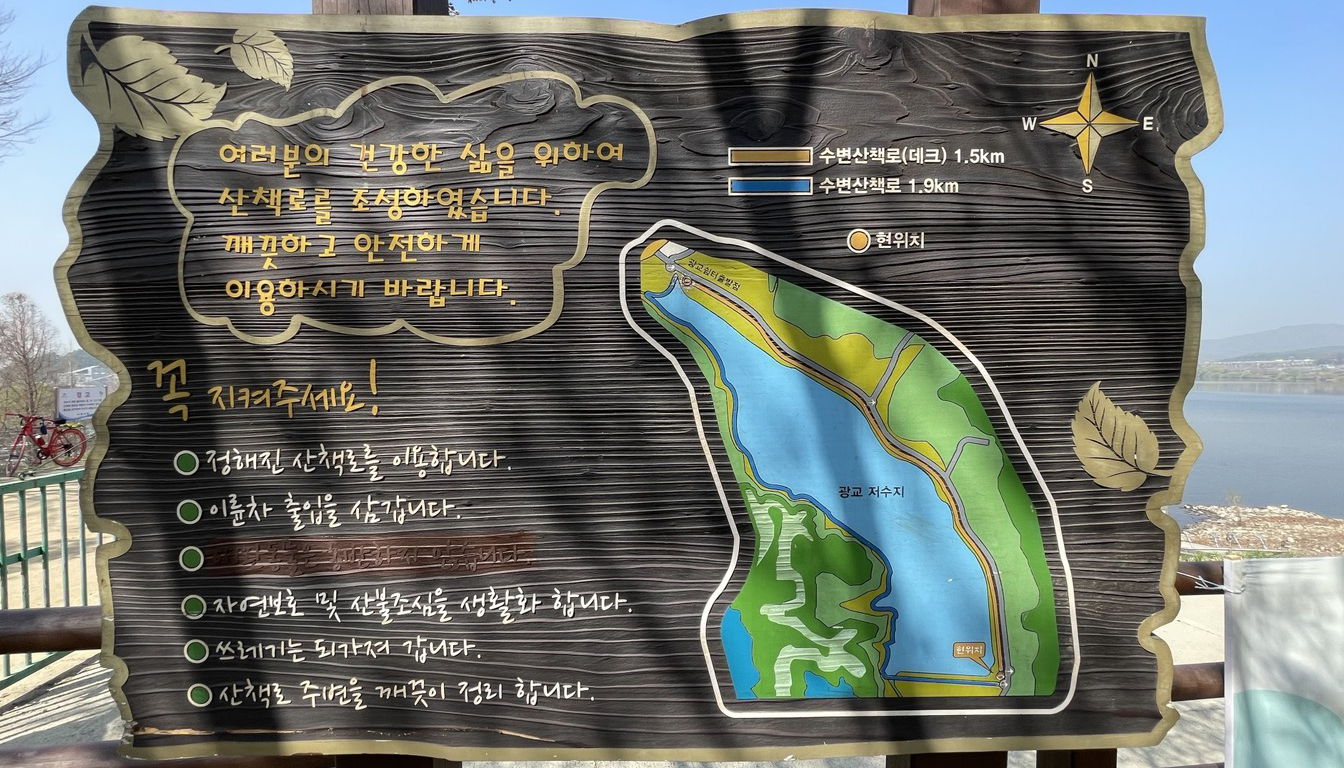 여러분의 건강한 삶을 위하여
산책로를 조성하였습니다.
깨끗하고 안전하게
이용하시기 바랍니다.
꼭 지켜주세요!
정해진 산책로를 이용합니다.
이륜차 출입을 삼갑니다.
자연보호 및 산불조심을 생활화 합니다.
쓰레기는 되가져 갑니다.
산책로 주변을 깨끗이 정리 합니다.
N
W E
S
수변산책로(데크) 1.5km
수변산책로 1.9km
현위치
광교쉼터출발점
광교 저수지
현위치